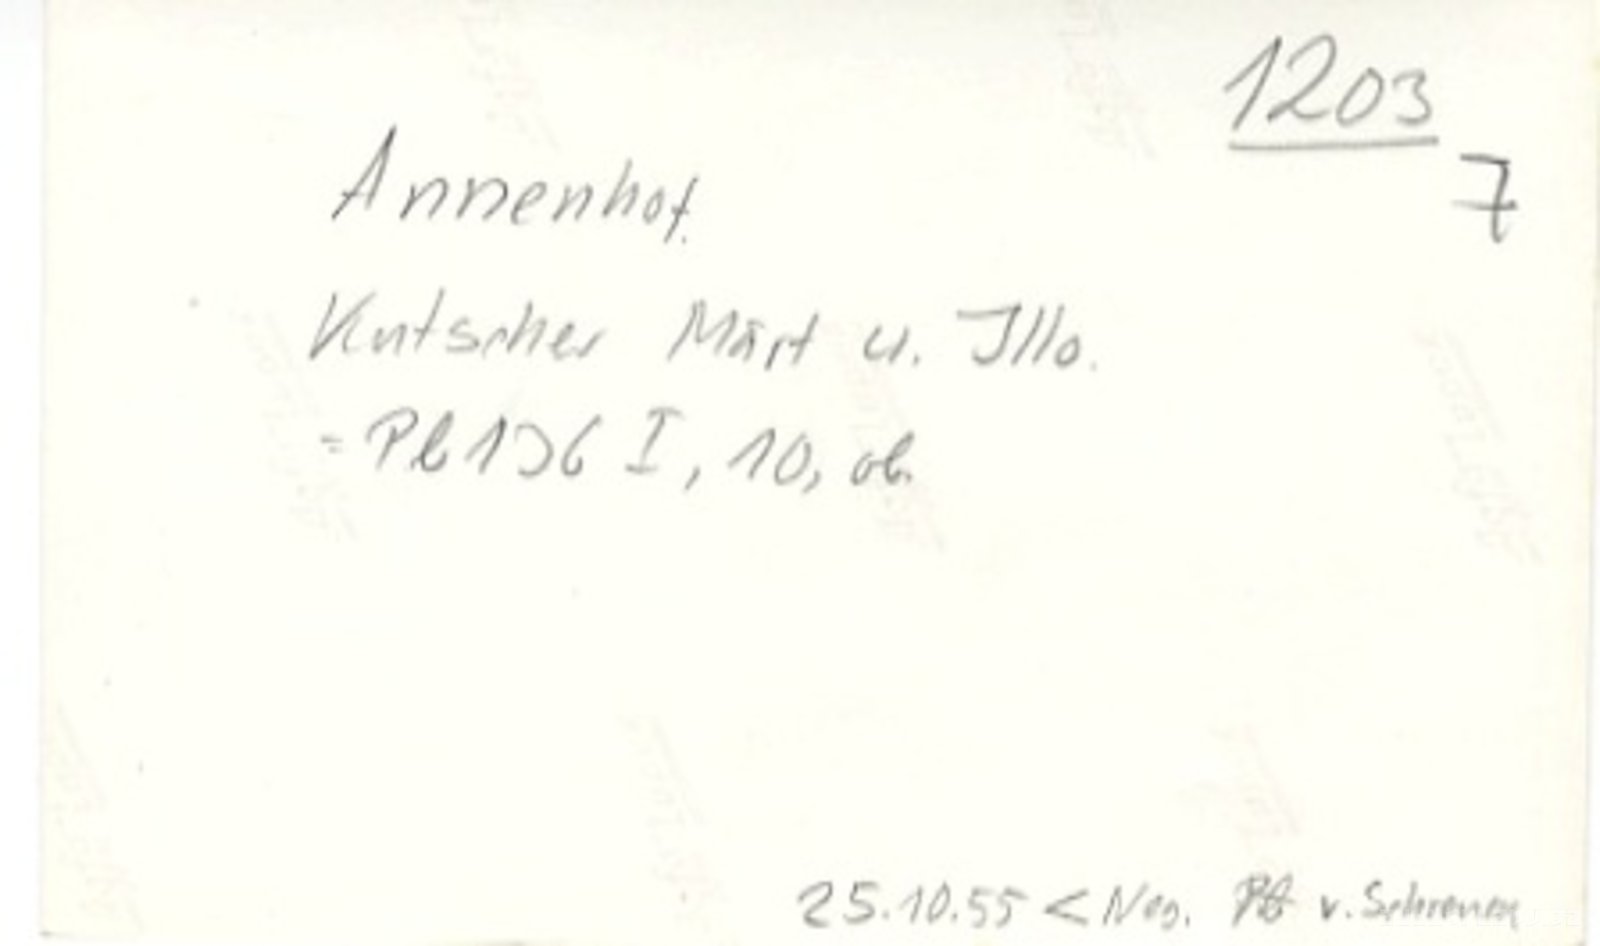 1203
7
Annenhof.
Kutscher Märt u. Illo.
= Pb 136 I, 10, ob.
25.10.55 < Neg. v.